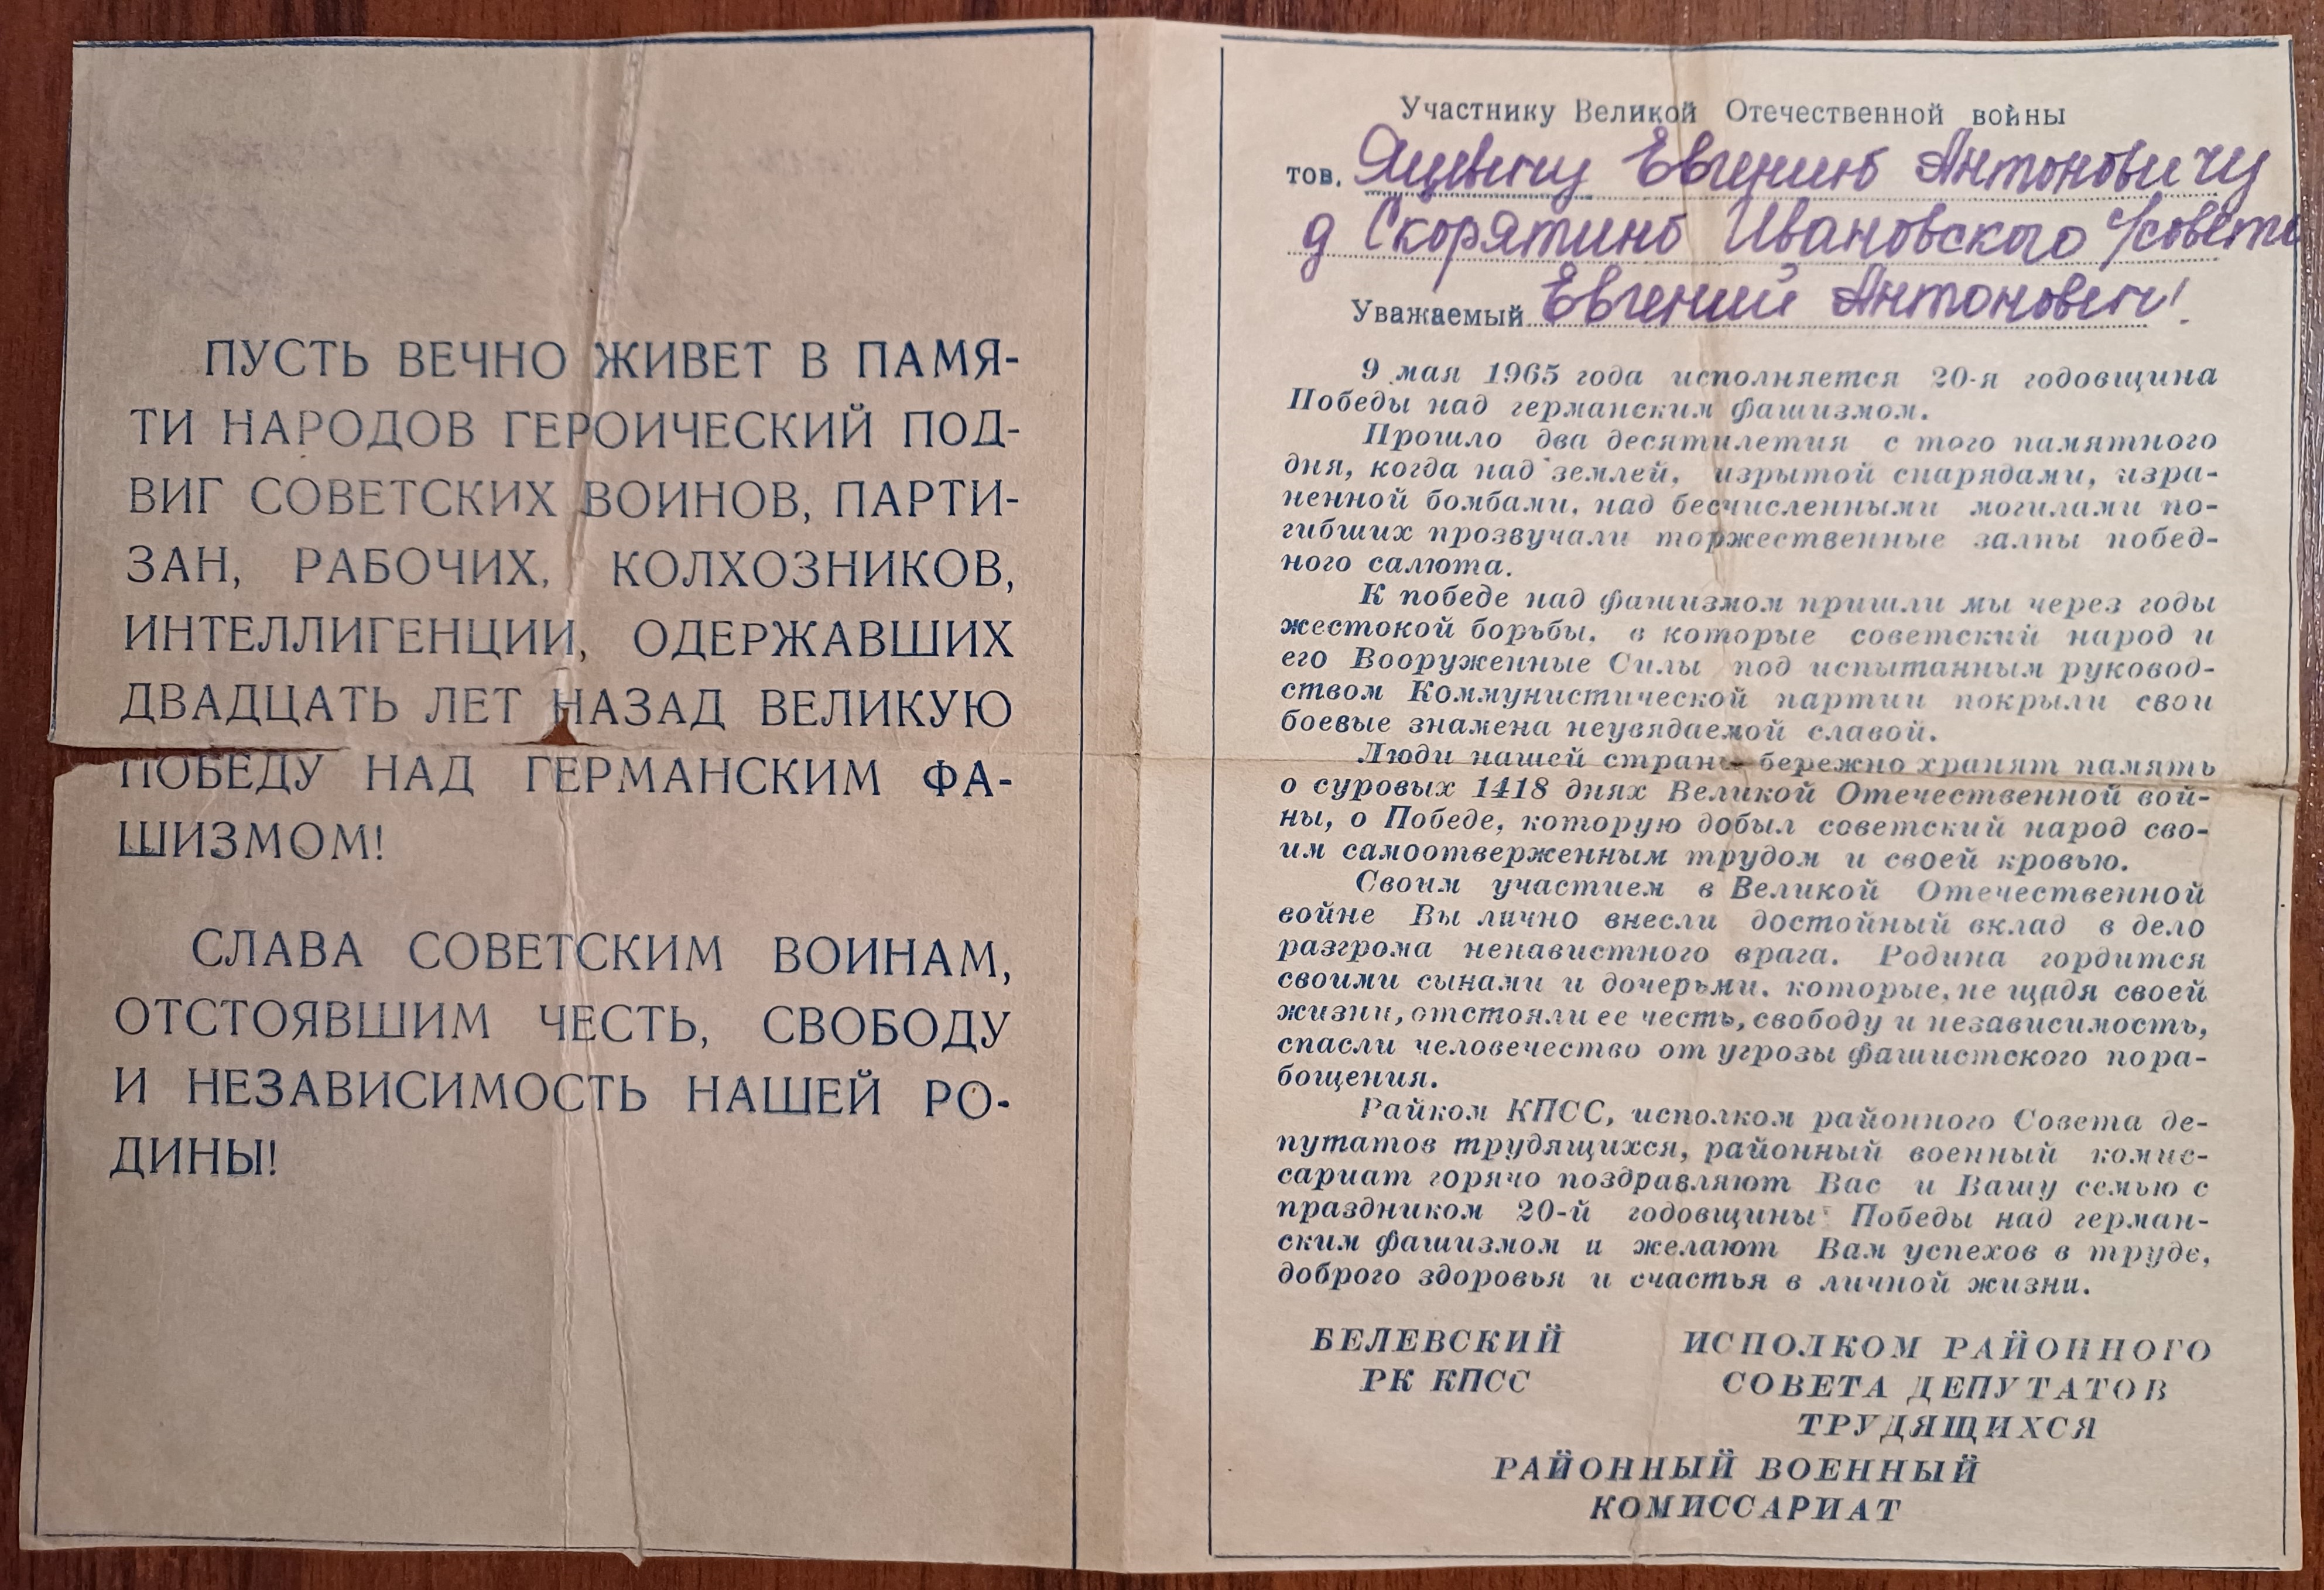 ПУСТЬ ВЕЧНО ЖИВЕТ В ПАМЯ-
ТИ НАРОДОВ ГЕРОИЧЕСКИЙ ПОД-
ВИГ СОВЕТСКИХ ВОИНОВ, ПАРТИ-
ЗАН, РАБОЧИХ, КОЛХОЗНИКОВ,
ИНТЕЛЛИГЕНЦИИ, ОДЕРЖАВШИХ
ДВАДЦАТЬ ЛЕТ НАЗАД ВЕЛИКУЮ
ПОБЕДУ НАД ГЕРМАНСКИМ ФА-
ШИЗМОМ!
СЛАВА СОВЕТСКИМ ВОИНАМ,
ОТСТОЯВШИМ ЧЕСТЬ, СВОБОДУ
И НЕЗАВИСИМОСТЬ НАШЕЙ РО-
ДИНЫ!
Участнику Великой Отечественной войны
тов. Евгению Антоновичу
д Скорятино Ивановского с/совета
Уважаемый Евгений Антонович!
9 мая 1965 года исполняется 20-я годовщина
Победы над германским фашизмом.
Прошло два десятилетия с того памятного
дня, когда над землей, изрытой снарядами, изра-
ненной бомбами, над бесчисленными могилами по-
гибших прозвучали торжественные залпы побед-
ного салюта.
К победе над фашизмом пришли мы через годы
жестокой борьбы, в которые советский народ и
его Вооруженные Силы под испытанным руковод-
ством Коммунистической партии покрыли свои
боевые знамена неувядаемой славой.
Люди нашей страны бережно хранят память
о суровых 1418 днях Великой Отечественной вой-
ны, о Победе, которую добыл советский народ сво-
им самоотверженным трудом и своей кровью.
Своим участием в Великой Отечественной
войне Вы лично внесли достойный вклад в дело
разгрома ненавистного врага. Родина гордится
своими сынами и дочерьми, которые, не щадя своей
жизни, отстояли ее честь, свободу и независимость,
спасли человечество от угрозы фашистского пора-
бощения.
Райком КПСС, исполком районного Совета де-
путатов трудящихся, районный военный комис-
сариат горячо поздравляют Вас и Вашу семью с
праздником 20-й годовщины Победы над герман-
ским фашизмом и желают Вам успехов в труде,
доброго здоровья и счастья в личной жизни.
БЕЛЕВСКИЙ
РК КПСС
ИСПОЛКОМ РАЙОННОГО
СОВЕТА ДЕПУТАТОВ
ТРУДЯЩИХСЯ
РАЙОННЫЙ ВОЕННЫЙ
КОМИССАРИАТ